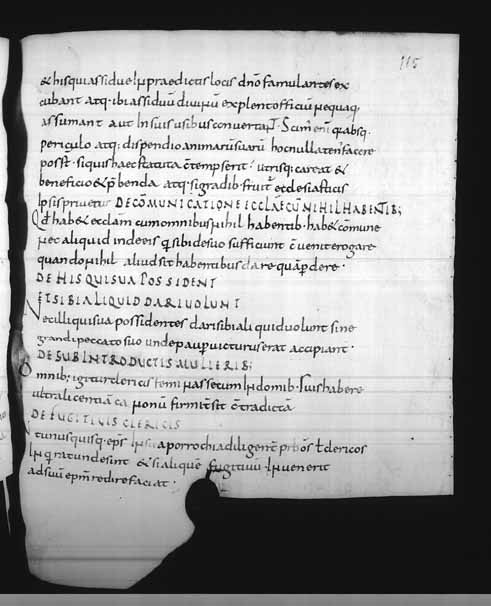 115
& his qui assidue In praedictis locis dnō famulantes ex
cubant atq· ibi assiduū diuinū explent officiū nequaq;
assumant aut In suis usibus conuertant. Scim enī q absq·
periculo atq; dispendio animarū suarū hoc nullaten' facere
poss̄t. si quis haec statuta c̄tempserit utrisq; careat &
beneficio & p̄benda atq· si gradib· fruit' ecclesiasticis
Ipsis priuetur DE CŌMUNICATIONE ECCLAE CŪ NIHIL HABENTIB;
Qd hab& ecclam cum omnibus nihil habentib· hab& cōmune
nec aliquid inde eis q sibi de suo sufficiunt c̄uenit erogare
quando nihil aliud sit habentibus dare quā p̄dere·
DE HIS QUI SUA POSSIDENT
ET SIBI ALIQUID DARI UOLUNT
Nec illi qui sua possidentes dari sibi aliquid uolunt sine
grandi peccato suo unde paup̄ uicturus erat accipiant·
DE SUBINTRODUCTIS MULIERIB;
Omnib; igitur clericis feminas secum In domib· suis habere
ultra licentiā canonū firmit' sit c̄tradictā
DE FUGITIUIS CLERICIS
tunusquisq· eps̄ In sua parrochia diligent' prb̄os t̄ clericos
In q̄rat unde sint & si aliquē fugitiuū Inuenerit
ad suū ep̄m redire faciat·